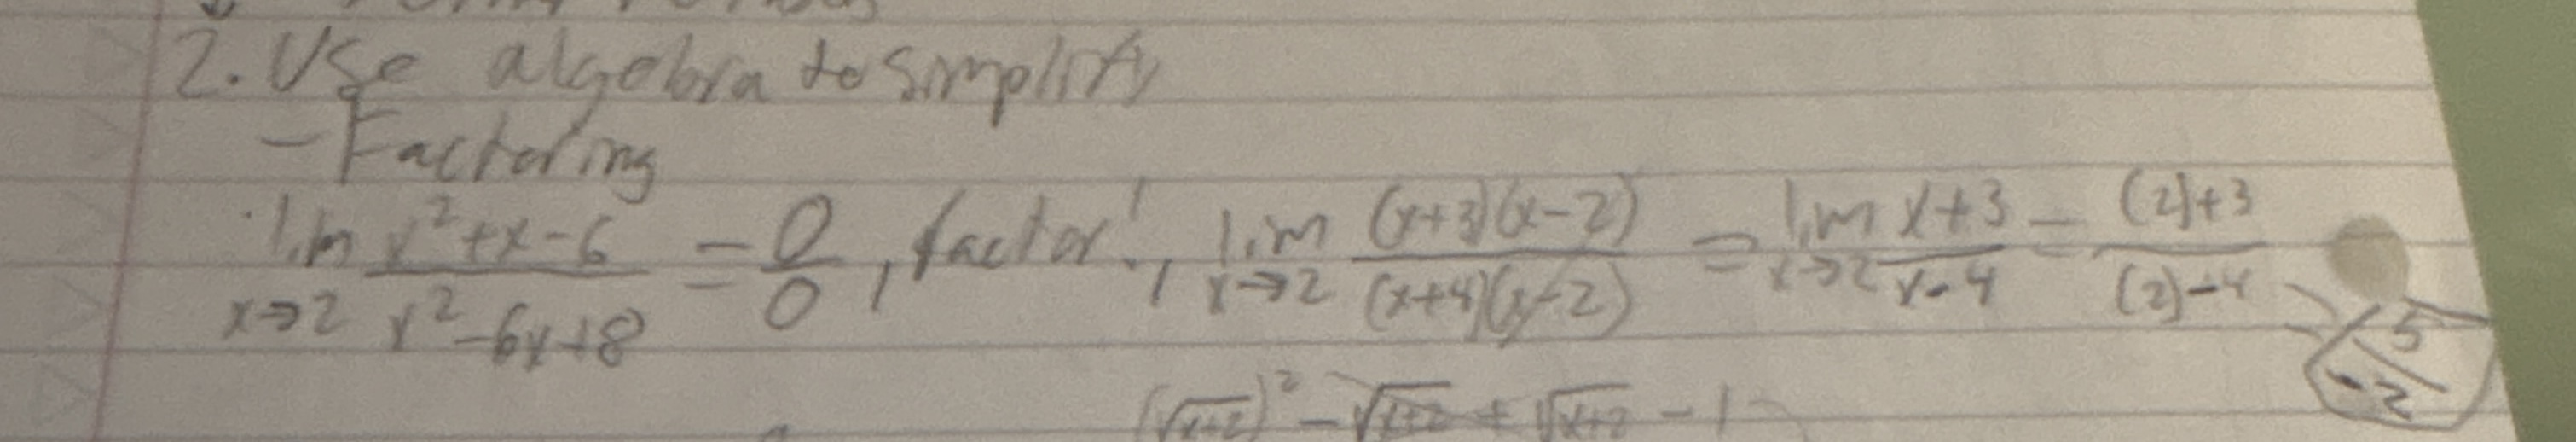 2. Use algebra to simplify
- Factoring
lim x→2 (x²+x-6)/(x²-6x+8) = 0/0, factor!, lim x→2 ((x+3)(x-2))/((x+4)(x-2)) = lim x→2 (x+3)/(x-4) = ((2)+3)/((2)-4) = 5/-2
(√(x+2))² - √(x+2) + √(x+2) - 1